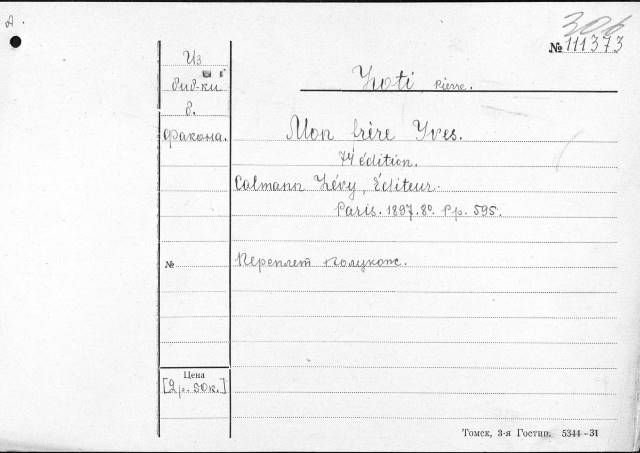 A.
306
№ 111373
Из
биб-ки
б.
факона.
Loti, Pierre.
Mon frère Yves.
74 édition.
Calmann Lévy, Éditeur.
Paris. 1897. 8º. Pp. 595.
№
Переплет полукож.
Цена
[2 р. 50 к.]
Томск, 3-я Гостип. 5344-31